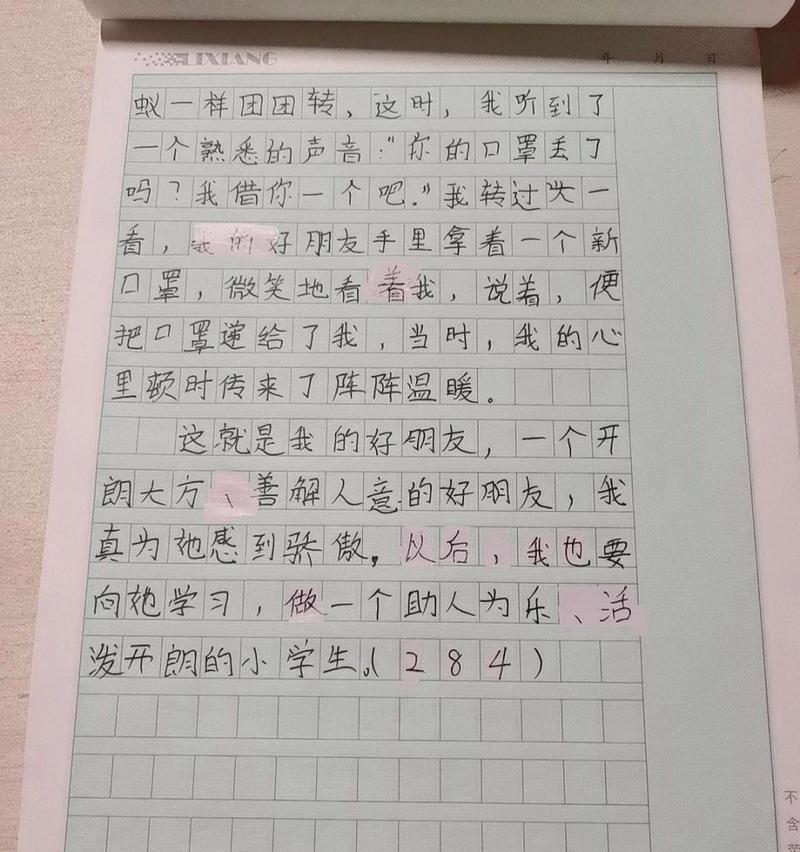 LIXIANG
年 月 日
蚁一样团团转、这时，我听到了
一个熟悉的声音："你的口罩丢了
吗？我借你一个吧."我转过头一
看，我的好朋友手里拿着一个新
口罩，微笑地看着我，说着，便
把口罩递给了我，当时，我的心
里顿时传来了阵阵温暖。
这就是我的好朋友，一个开
朗大方、善解人意的好朋友，我
真为她感到骄傲，以后，我也要
向她学习，做一个助人为乐、活
泼开朗的小学生。(284)
不
含